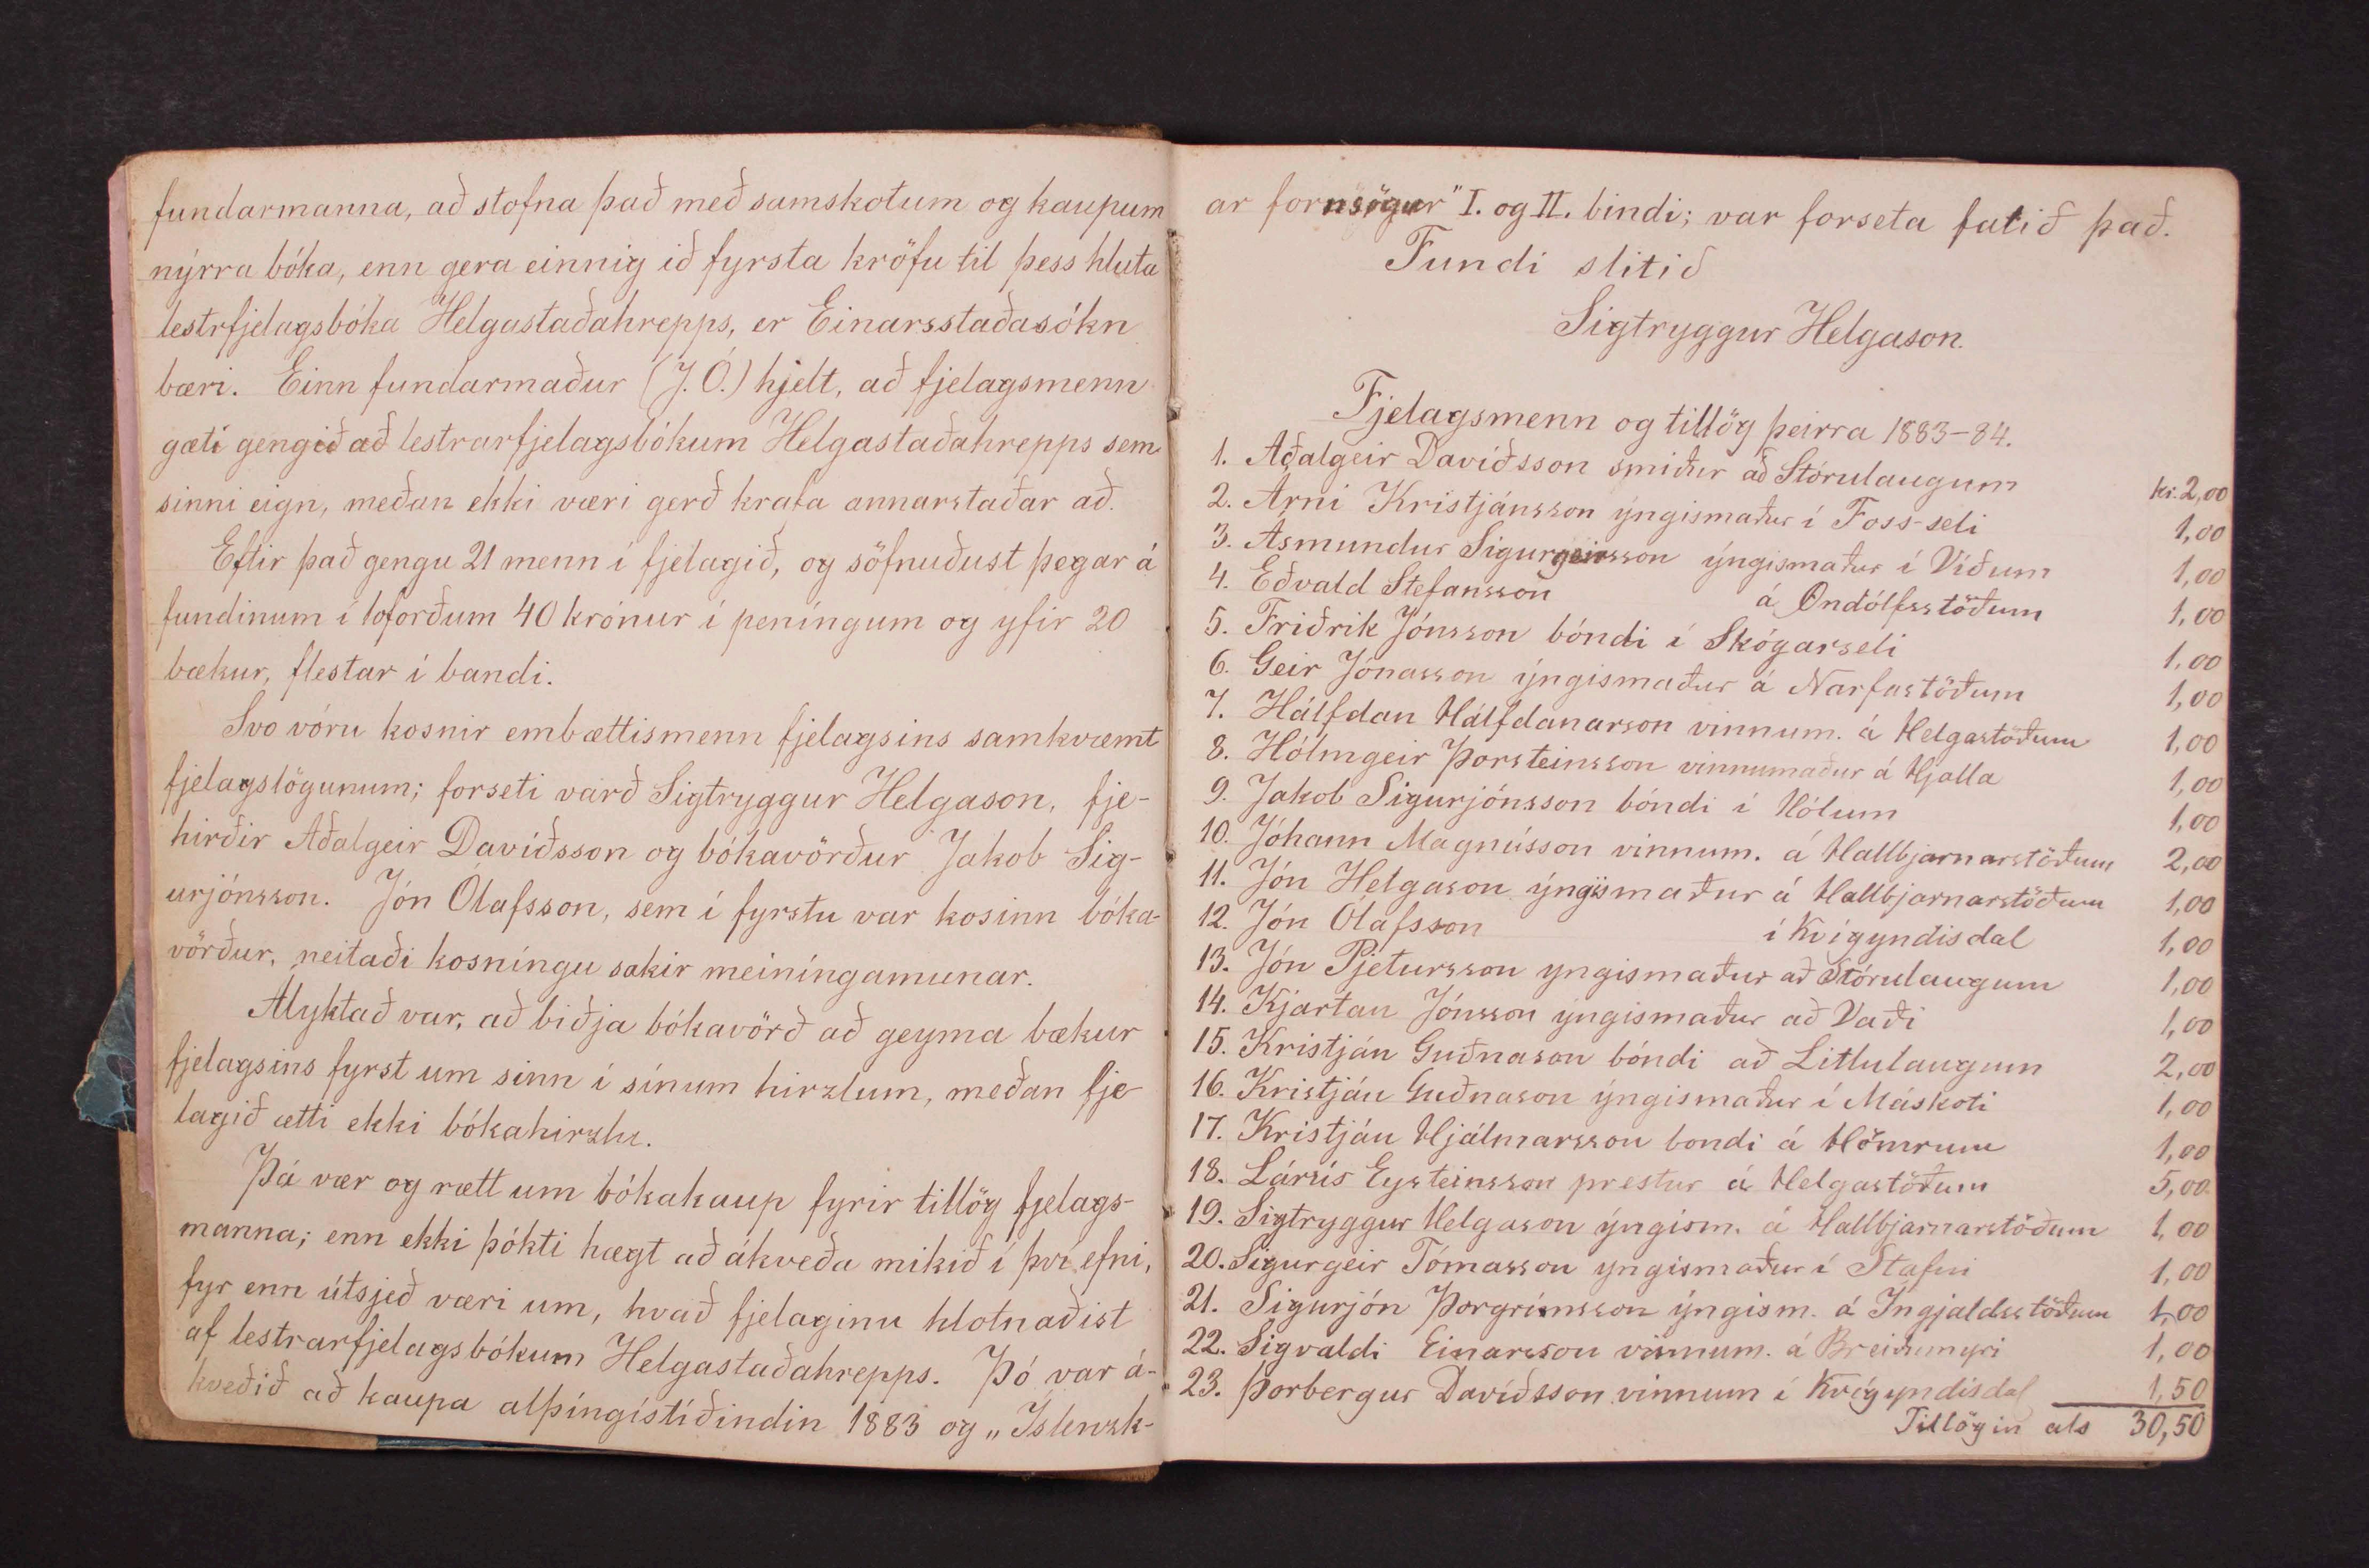 fundarmanna, að stofna það með samskotum og kaupum
nýrra bóka, enn gera einnig ið fyrsta kröfu til þess hluta
lestrfjelagsbóka Helgastaðahrepps, er Einarsstaðasókn
bæri. Einn fundarmaður (J. Ó.) hjelt, að fjelagsmenn
gæti gengið að lestrarfjelagsbókum Helgastaðahrepps sem
sinni eign, meðan ekki væri gerð krafa annarstaðar að.
Eftir það gengu 21 menn í fjelagið, og söfnuðust þegar á
fundinum í loforðum 40 krónur í peníngum og yfir 20
bækur, flestar í bandi.
Svo vóru kosnir embættismenn fjelagsins samkvæmt
fjelagslögunum; forseti varð Sigtryggur Helgason, fje-
hirðir Aðalgeir Davíðsson og bókavörður Jakob Sig-
urjónsson. Jón Ólafsson, sem í fyrstu var kosinn bóka-
vörður, neitaði kosníngu sakir meiníngamunar.
Ályktað var, að biðja bókavörð að geyma bækur
fjelagsins fyrst um sinn í sínum hirzlum, meðan fje-
lagið ætti ekki bókahirzlu.
Þá var og rætt um bókakaup fyrir tillög fjelags-
manna; enn ekki þókti hægt að ákveða mikið í því efni,
fyr enn útsjeð væri um, hvað fjelaginu hlotnaðist
af lestrarfjelagsbókum Helgastaðahrepps. Þó var á-
kveðið að kaupa alþíngistíðindin 1883 og „Íslenzk-
ar fornsögur" I. og II. bindi; var forseta falið það.
Fundi slitið
Sigtryggur Helgason.
Fjelagsmenn og tillög þeirra 1883-84.
1. Aðalgeir Davíðsson smiður að Stórulaugum kr. 2,00
2. Árni Kristjánsson ýngismaður í Foss-seli 1,00
3. Ásmundur Sigurgeirsson ýngismaður í Víðum 1,00
4. Eðvald Stefansson á Öndólfsstöðum 1,00
5. Friðrik Jónsson bóndi í Skógarseli 1,00
6. Geir Jónasson ýngismaður á Narfastöðum 1,00
7. Hálfdan Hálfdanarson vinnum. á Helgastöðum 1,00
8. Hólmgeir Þorsteinsson vinnumaður á Hjalla 1,00
9. Jakob Sigurjónsson bóndi í Hólum 1,00
10. Jóhann Magnússon vinnum. á Hallbjarnarstöðum 2,00
11. Jón Helgason ýngismaður á Hallbjarnarstöðum 1,00
12. Jón Ólafsson í Kvígyndisdal 1,00
13. Jón Pjetursson yngismaður að Stórulaugum 1,00
14. Kjartan Jónsson ýngismaður að Vaði 1,00
15. Kristján Guðnason bóndi að Litlulaugum 2,00
16. Kristján Guðnason ýngismaður í Máskoti 1,00
17. Kristján Hjálmarsson bondi á Hömrum 1,00
18. Lárús Eysteinsson prestur á Helgastöðum 5,00
19. Sigtryggur Helgason ýngism. á Hallbjarnarstöðum 1,00
20. Sigurgeir Tómasson yngismaður í Stafni 1,00
21. Sigurjón Þorgrímsson ýngism. á Íngjaldsstöðum 1,00
22. Sigvaldi Einarsson vinnum. á Breiðumýri 1,00
23. Þorbergur Davíðsson vinnum í Kvígyndisdal 1,50
Tillögin als 30,50